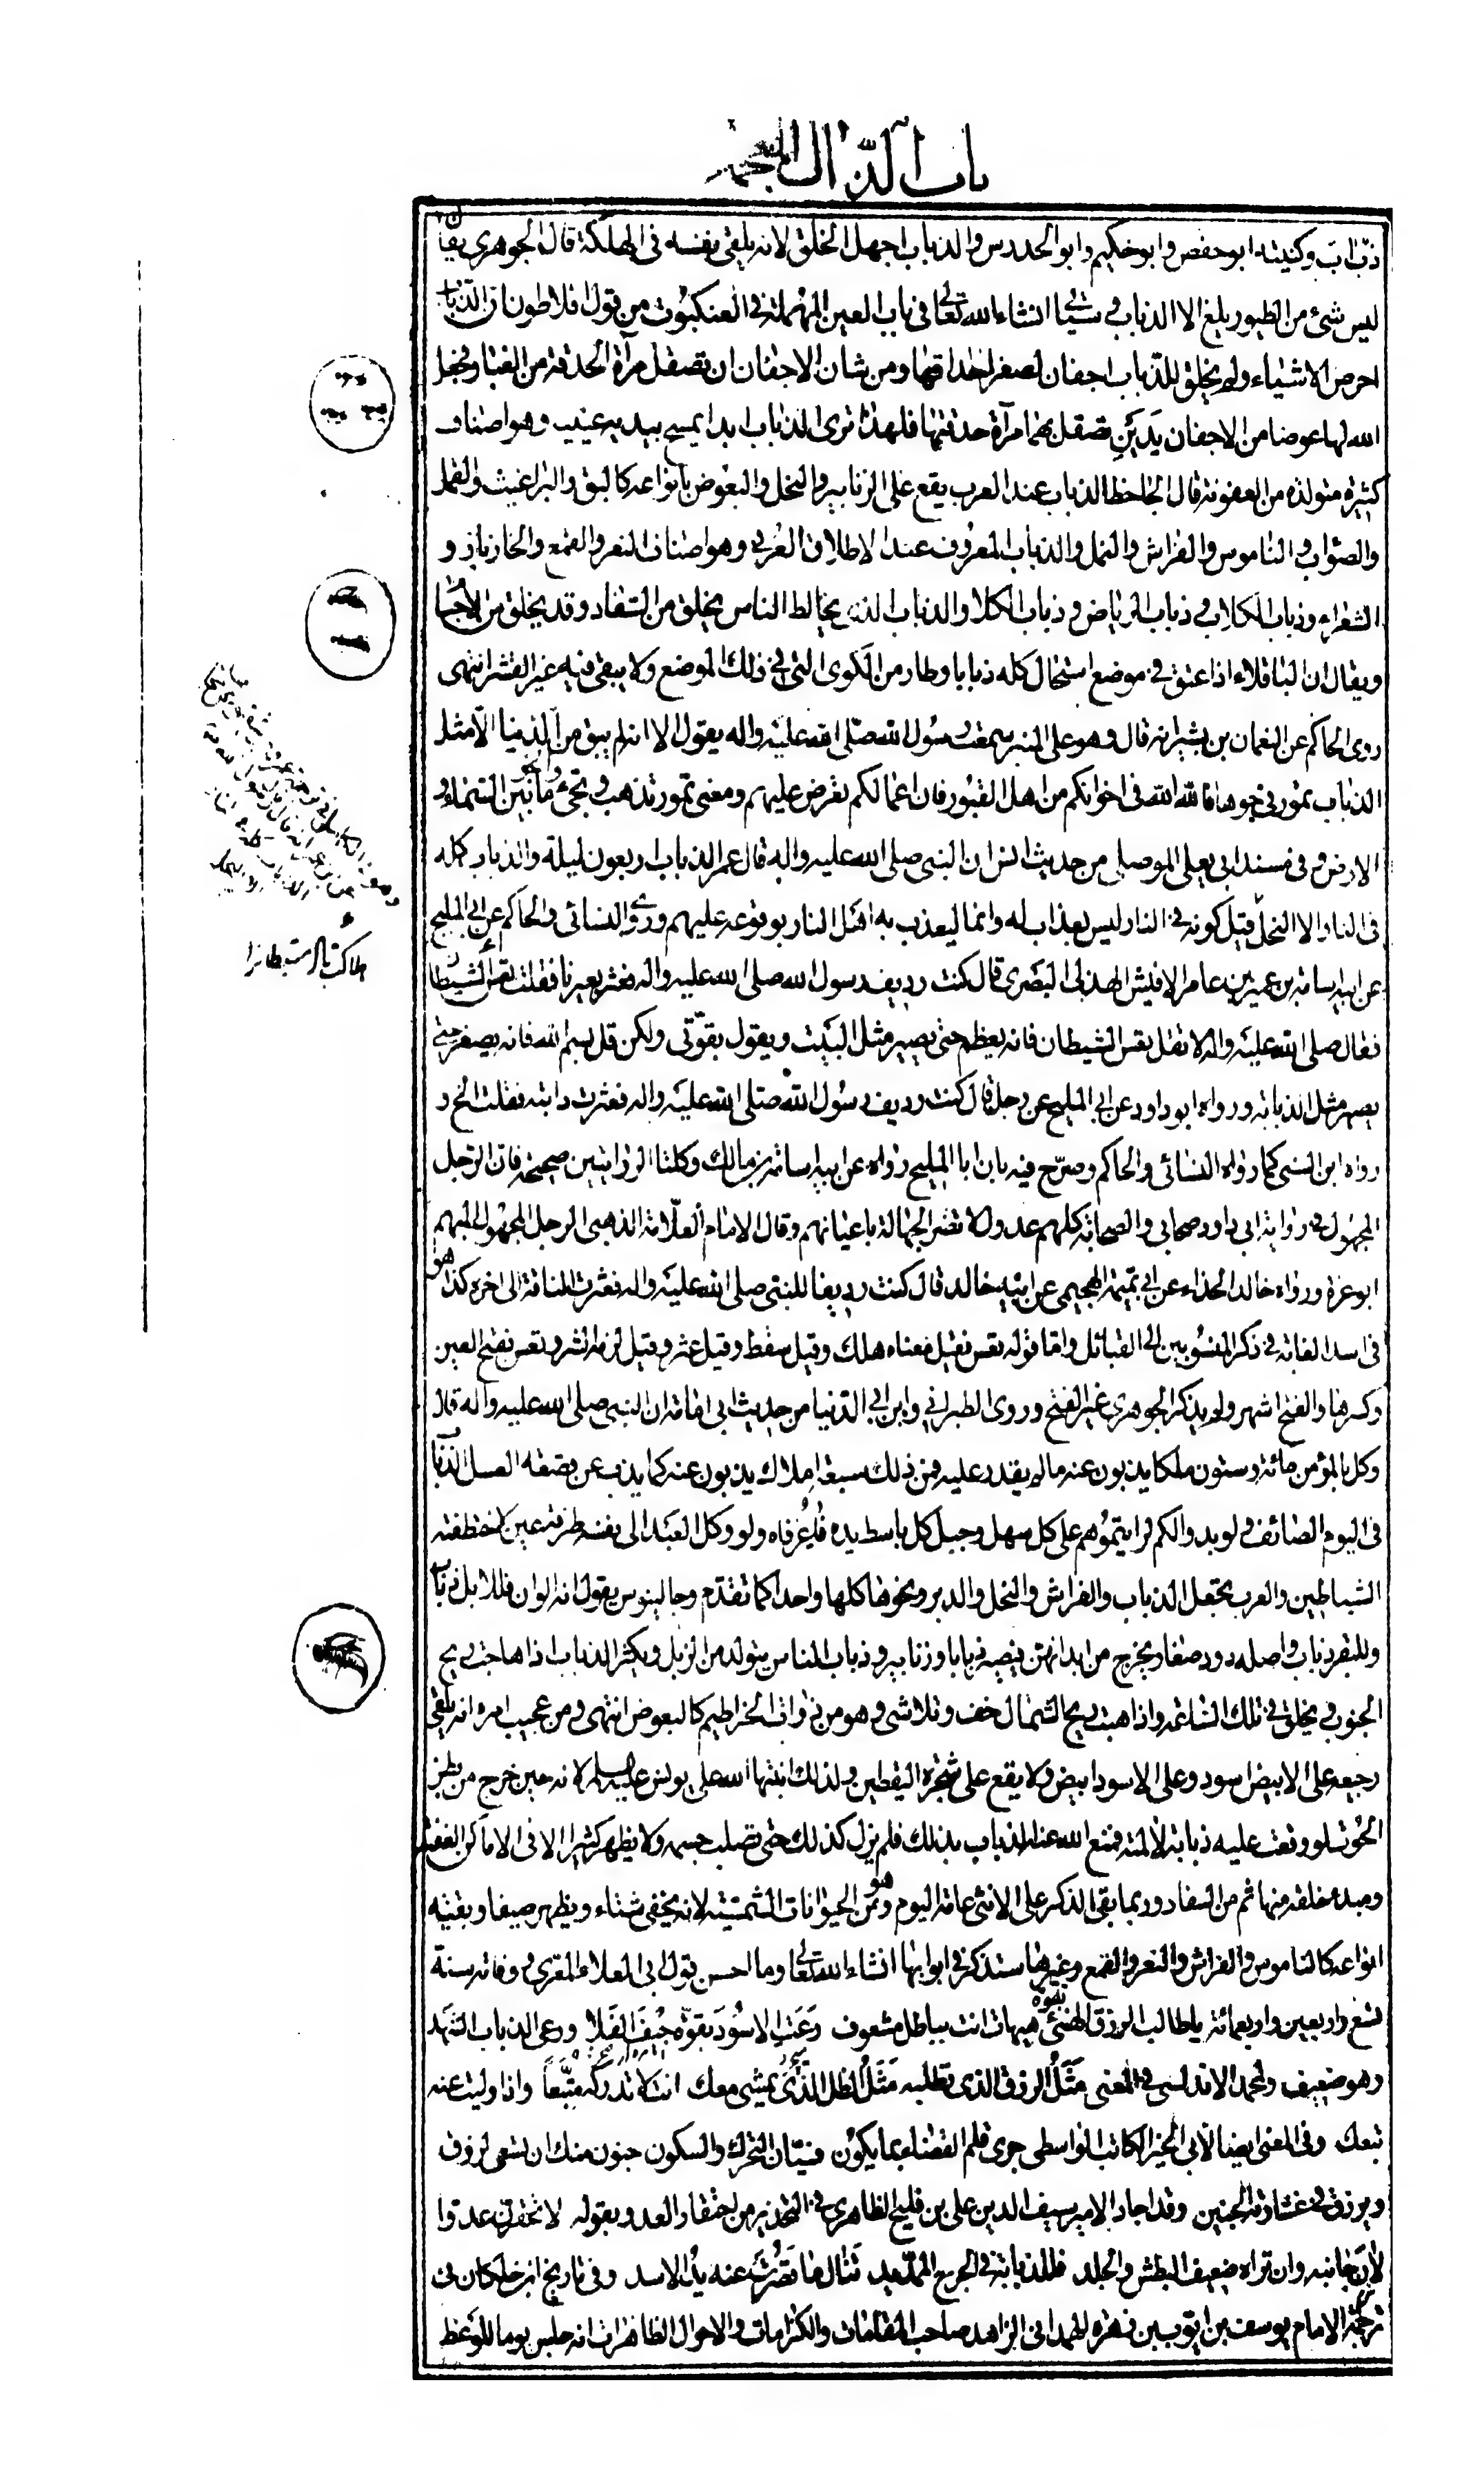 باب الذال المعجمة
ذباب وكنيته ابو حفص وابو حكيم وابو الحدرس والذباب اجهل الخلق لانه يلقى نفسه فى الهلكة قال الجوهرى يقال
ليس شئ من الطيور يلغ الا الذباب وسياتى انشاء الله تعالى فى باب العين المهملة فى العنكبوت من قول افلاطون ان الذباب
احرص الاشياء ولم يخلق للذباب اجفان لصغر احداقها ومن شان الاجفان ان تصقل مرآة الحدقة من الغبار فجعل
الله لها عوضا من الاجفان يدين تصقل بهما مرآة حدقتها فلهذا ترى الذباب ابدا يمسح بيديه عينيه وهو اصناف
كثيرة متولدة من العفونة قال الجاحظ الذباب عند العرب يقع على الزنابير والنحل والبعوض بانواعه كالبق والبراغيث والقمل
والصواب والناموس والفراش والنمل والذباب المعروف عند الاطلاق العرفى وهو اصناف النعر والقمع والخازباز و
الشعراء وذباب الكلاب وذباب الرياض وذباب الكلا والذباب الذى يخالط الناس يخلق من السفاد وقد يخلق من الاجسام
ويقال ان الباقلاء اذا عتق فى موضع استحال كله ذبابا وطار من الكوى التى فى ذلك الموضع ولا يبقى فيه غير القشر انتهى
روى الحاكم عن النعمان بن بشير انه قال وهو على المنبر سمعت رسول الله صلى الله عليه واله يقول الا انه لم يبق من الدنيا الا مثل
الذباب تمور فى جوها فالله الله فى اخوانكم من اهل القبور فان اعمالكم تعرض عليهم ومعنى تمور تذهب وتجئ وما بين السماء و
الارض وفى مسند ابى يعلى الموصلى من حديث انس ان النبى صلى الله عليه واله قال عمر الذباب اربعون ليلة والذباب كله
فى النار الا النحل قيل كونه فى النار ليس بعذاب له وانما ليعذب به اهل النار بوقوعه عليهم وروى النسائى والحاكم عن ابى المليح
عن ابيه اسامة بن عمير بن عامر الاقيش الهذلى البصرى قال كنت رديف رسول الله صلى الله عليه واله فعثر بعيرنا فقلت تعس الشيطان
فقال صلى الله عليه واله لا تقل تعس الشيطان فانه يعظم حتى يصير مثل البيت ويقول بقوتى ولكن قل بسم الله فانه يصغر حتى
يصير مثل الذبابة ورواه ابو داود عن ابى المليح عن رجل قال كنت رديف رسول الله صلى الله عليه واله فعثرت دابته فقلت الخ و
رواه ابن السنى كما رواه النسائى والحاكم وصرح فيه بان ابا المليح رواه عن ابيه اسامة بن مالك وكلتا الروايتين صحيحة فان الرجل
المجهول فى رواية ابى داود صحابى والصحابة كلهم عدول لا تضر الجهالة باعيانهم وقال الامام العلامة الذهبى الرجل المجهول المبهم
ابو عزة ورواه خالد الحذاء عن ابى تميمة الهجيمى عن ابيه خالد قال كنت رديفا للنبى صلى الله عليه واله فعثرت الناقة الى اخره كذا هو
فى اسد الغابة فى ذكر المنسوبين الى القبائل واما قوله تعس فقيل معناه هلك وقيل سقط وقيل عثر وقيل لزمه الشر وتعس بفتح العين
وكسرها والفتح اشهر ولم يذكر الجوهرى غير الفتح وروى الطبرانى وابن ابى الدنيا من حديث ابى امامة ان النبى صلى الله عليه وآله قال
وكل بالمؤمن مائة وستون ملكا يذبون عنه ما لم يقدر عليه فمن ذلك سبعة املاك يذبون عنه كما يذب عن قصعة العسل الذباب
فى اليوم الصائف ولو بدوا لكم لرايتموهم على كل سهل وجبل كل باسط يده فاغر فاه ولو وكل العبد الى نفسه طرفة عين لاختطفته
الشياطين والعرب تجعل الذباب والفراش والنحل والدبر ونحوها كلها واحدا كما تقدم وجالينوس يقول انه الوان فللابل ذباب
وللبقر ذباب واصله دود صغار يخرج من ابدانهن فيصير ذبابا وزنابير وذباب الناس يتولد من الزبل ويكثر الذباب اذا هاجت ريح
الجنوب ويخلق فى تلك الساعة واذا هبت ريح الشمال خف وتلاشى وهو من ذوات الخراطيم كالبعوض انتهى ومن عجيب امره انه يلقى
رجيعه على الابيض اسود وعلى الاسود ابيض ولا يقع على شجرة اليقطين ولذلك انبتها الله على يونس عليه السلام لانه حين خرج من بطن
الحوت لو وقعت عليه ذبابة لآلمته فمنع الله عنه الذباب بذلك فلم يزل كذلك حتى تصلب جسمه ولا يظهر كثيرا الا فى الاماكن العفنة
ومبدء خلقه منها ثم من السفاد وربما بقى الذكر على الانثى عامة اليوم وهو من الحيوانات الشمسية لانه يخفى شتاء ويظهر صيفا وبقية
انواعه كالناموس والفراش والنعر والقمع وغيرها ستذكر فى ابوابها انشاء الله تعالى وما احسن قول ابى العلاء المعرى ووفاته سنة
تسع واربعين واربعمائة يا طالب الرزق الهنئ بقوة هيهات انت بباطل مشعوف رعت الاسود بقوة جيف الفلا ورعى الذباب الشهد
وهو ضعيف ولمحمد الاندلسى فى المعنى مثل الرزق الذى تطلبه مثل الظل الذى يمشى معك انت لا تدركه متبعا واذا وليت عنه
تبعك وفى المعنى ايضا لابى الخير الكاتب الواسطى جرى قلم القضاء بما يكون فسيان التحرك والسكون جنون منك ان تسعى لرزق
ويرزق فى غشاوته الجنين وقد اجاد الامير سيف الدين على بن فليح الظاهرى فى التحذير من احتقار العدو بقوله لا تحقرن عدوا
لان جانبه وان تراه ضعيف البطش والجلد فللذبابة فى الجرح الممد يد تنال ما قصرت عنه يد الاسد وفى تاريخ ابن خلكان فى
ترجمة الامام يوسف بن ايوب بن زهرة الهمدانى الزاهد صاحب المقامات والكرامات والاحوال الظاهرات انه جلس يوما للوعظ